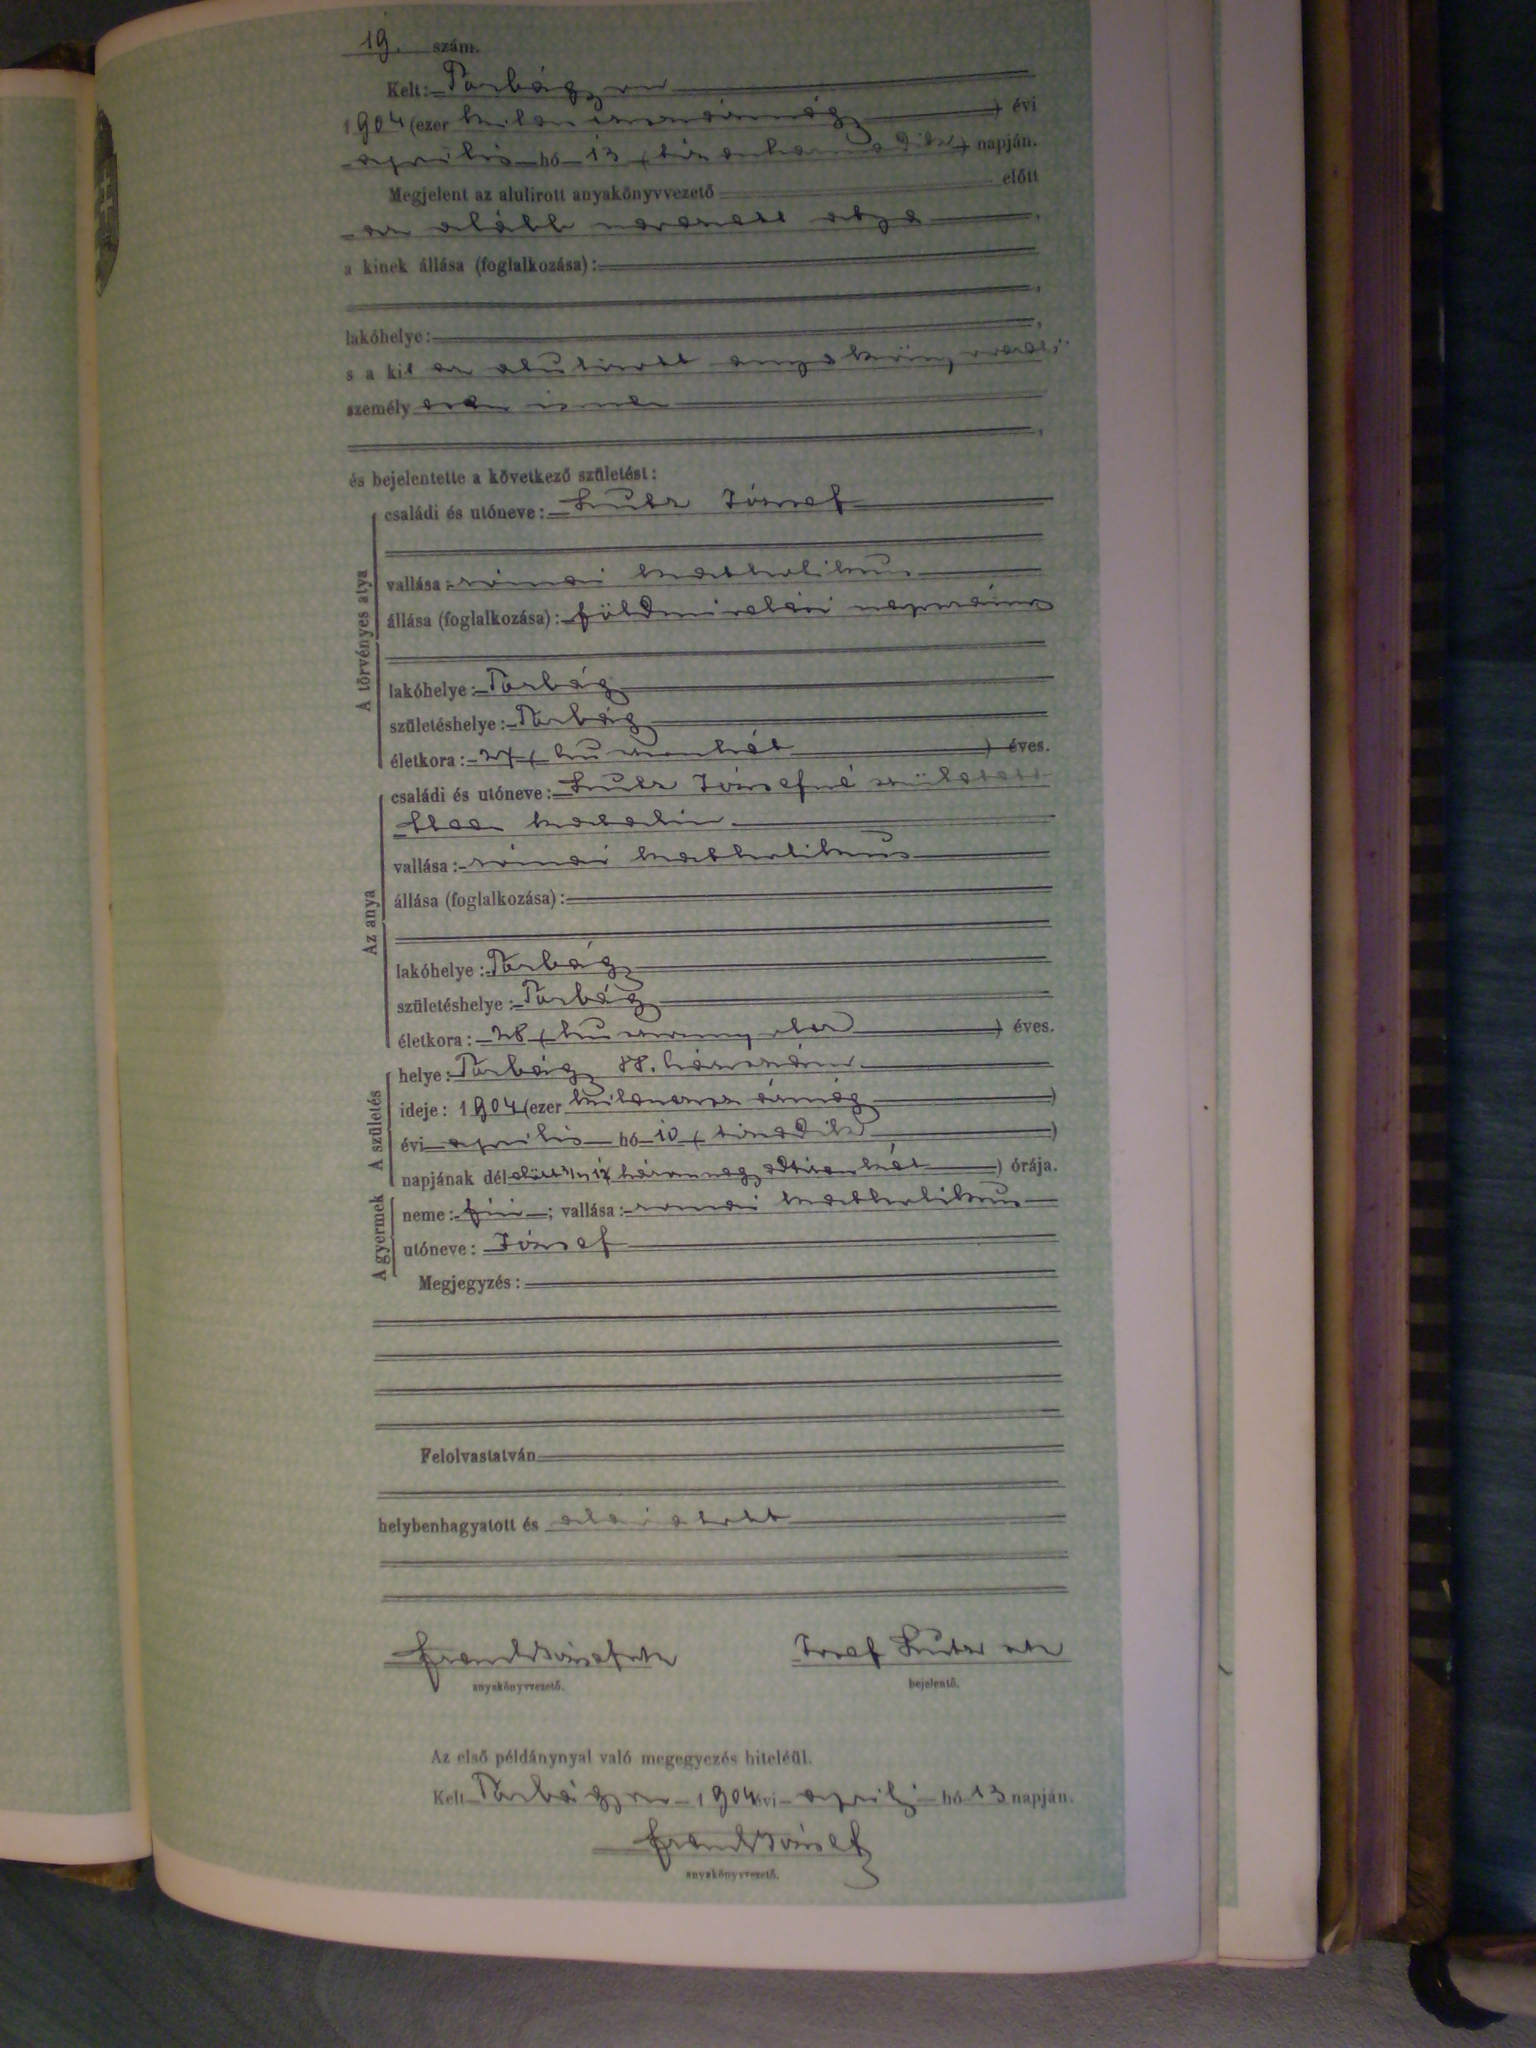 19. szám.
Kelt: Torbágyon
1904 (ezer kilenczszáznégy) évi
április hó 13 (tizenharmadik) napján.
Megjelent az alulirott anyakönyvvezető előtt
az alább nevezett atya,
a kinek állása (foglalkozása):
lakóhelye:
s a kit az alulirott anyakönyvvezető
személyesen ismer
és bejelentette a következő születést:
A törvényes atya
családi és utóneve: Lutz József
vallása: római katholikus
állása (foglalkozása): földmivelési napszámos
lakóhelye: Torbágy
születéshelye: Torbágy
életkora: 27 (huszonhét) éves.
Az anya
családi és utóneve: Lutz Józsefné született
Katalin
vallása: római katholikus
állása (foglalkozása):
lakóhelye: Torbágy
születéshelye: Torbágy
életkora: 28 (husznnyolcz) éves.
A születés
helye: Torbágy 88. házszám
ideje: 1904 (ezer kilenczszáznégy)
évi április hó 10 (tizedik)
napjának délelőtt 3/4 12 (háromnegyedtizenkét) órája.
A gyermek
neme: fiú; vallása: római katholikus
utóneve: József
Megjegyzés:
Felolvastatván
helybenhagyatott és aláiratott
anyakönyvvezető.
Josef Lutz
bejelentő.
Az első példánynyal való megegyezés hiteléül.
Kelt Torbágyon 1904 évi április hó 13 napján.
József
anyakönyvvezető.